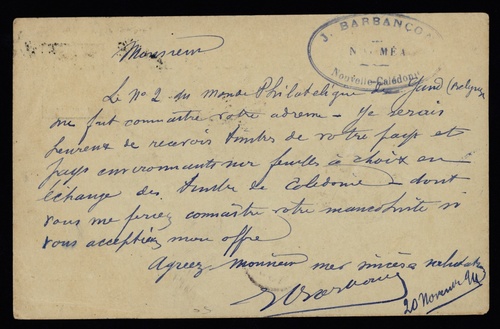 J. BARBANÇO
NOUMÉA
Nouvelle Calédonie
Monsieur
Le No 2 du Monde Philatélique de Gand (Belgique
me fait connaître votre adresse - Je serais
heureux de recevoir timbres de votre pays et
pays environnants sur feuilles à choix en
échange des timbres de Calédonie - dont
vous me feriez connaître votre mancoliste si
vous acceptiez mon offre
Agreez Monsieur mes sincères salutations
20 Novembre